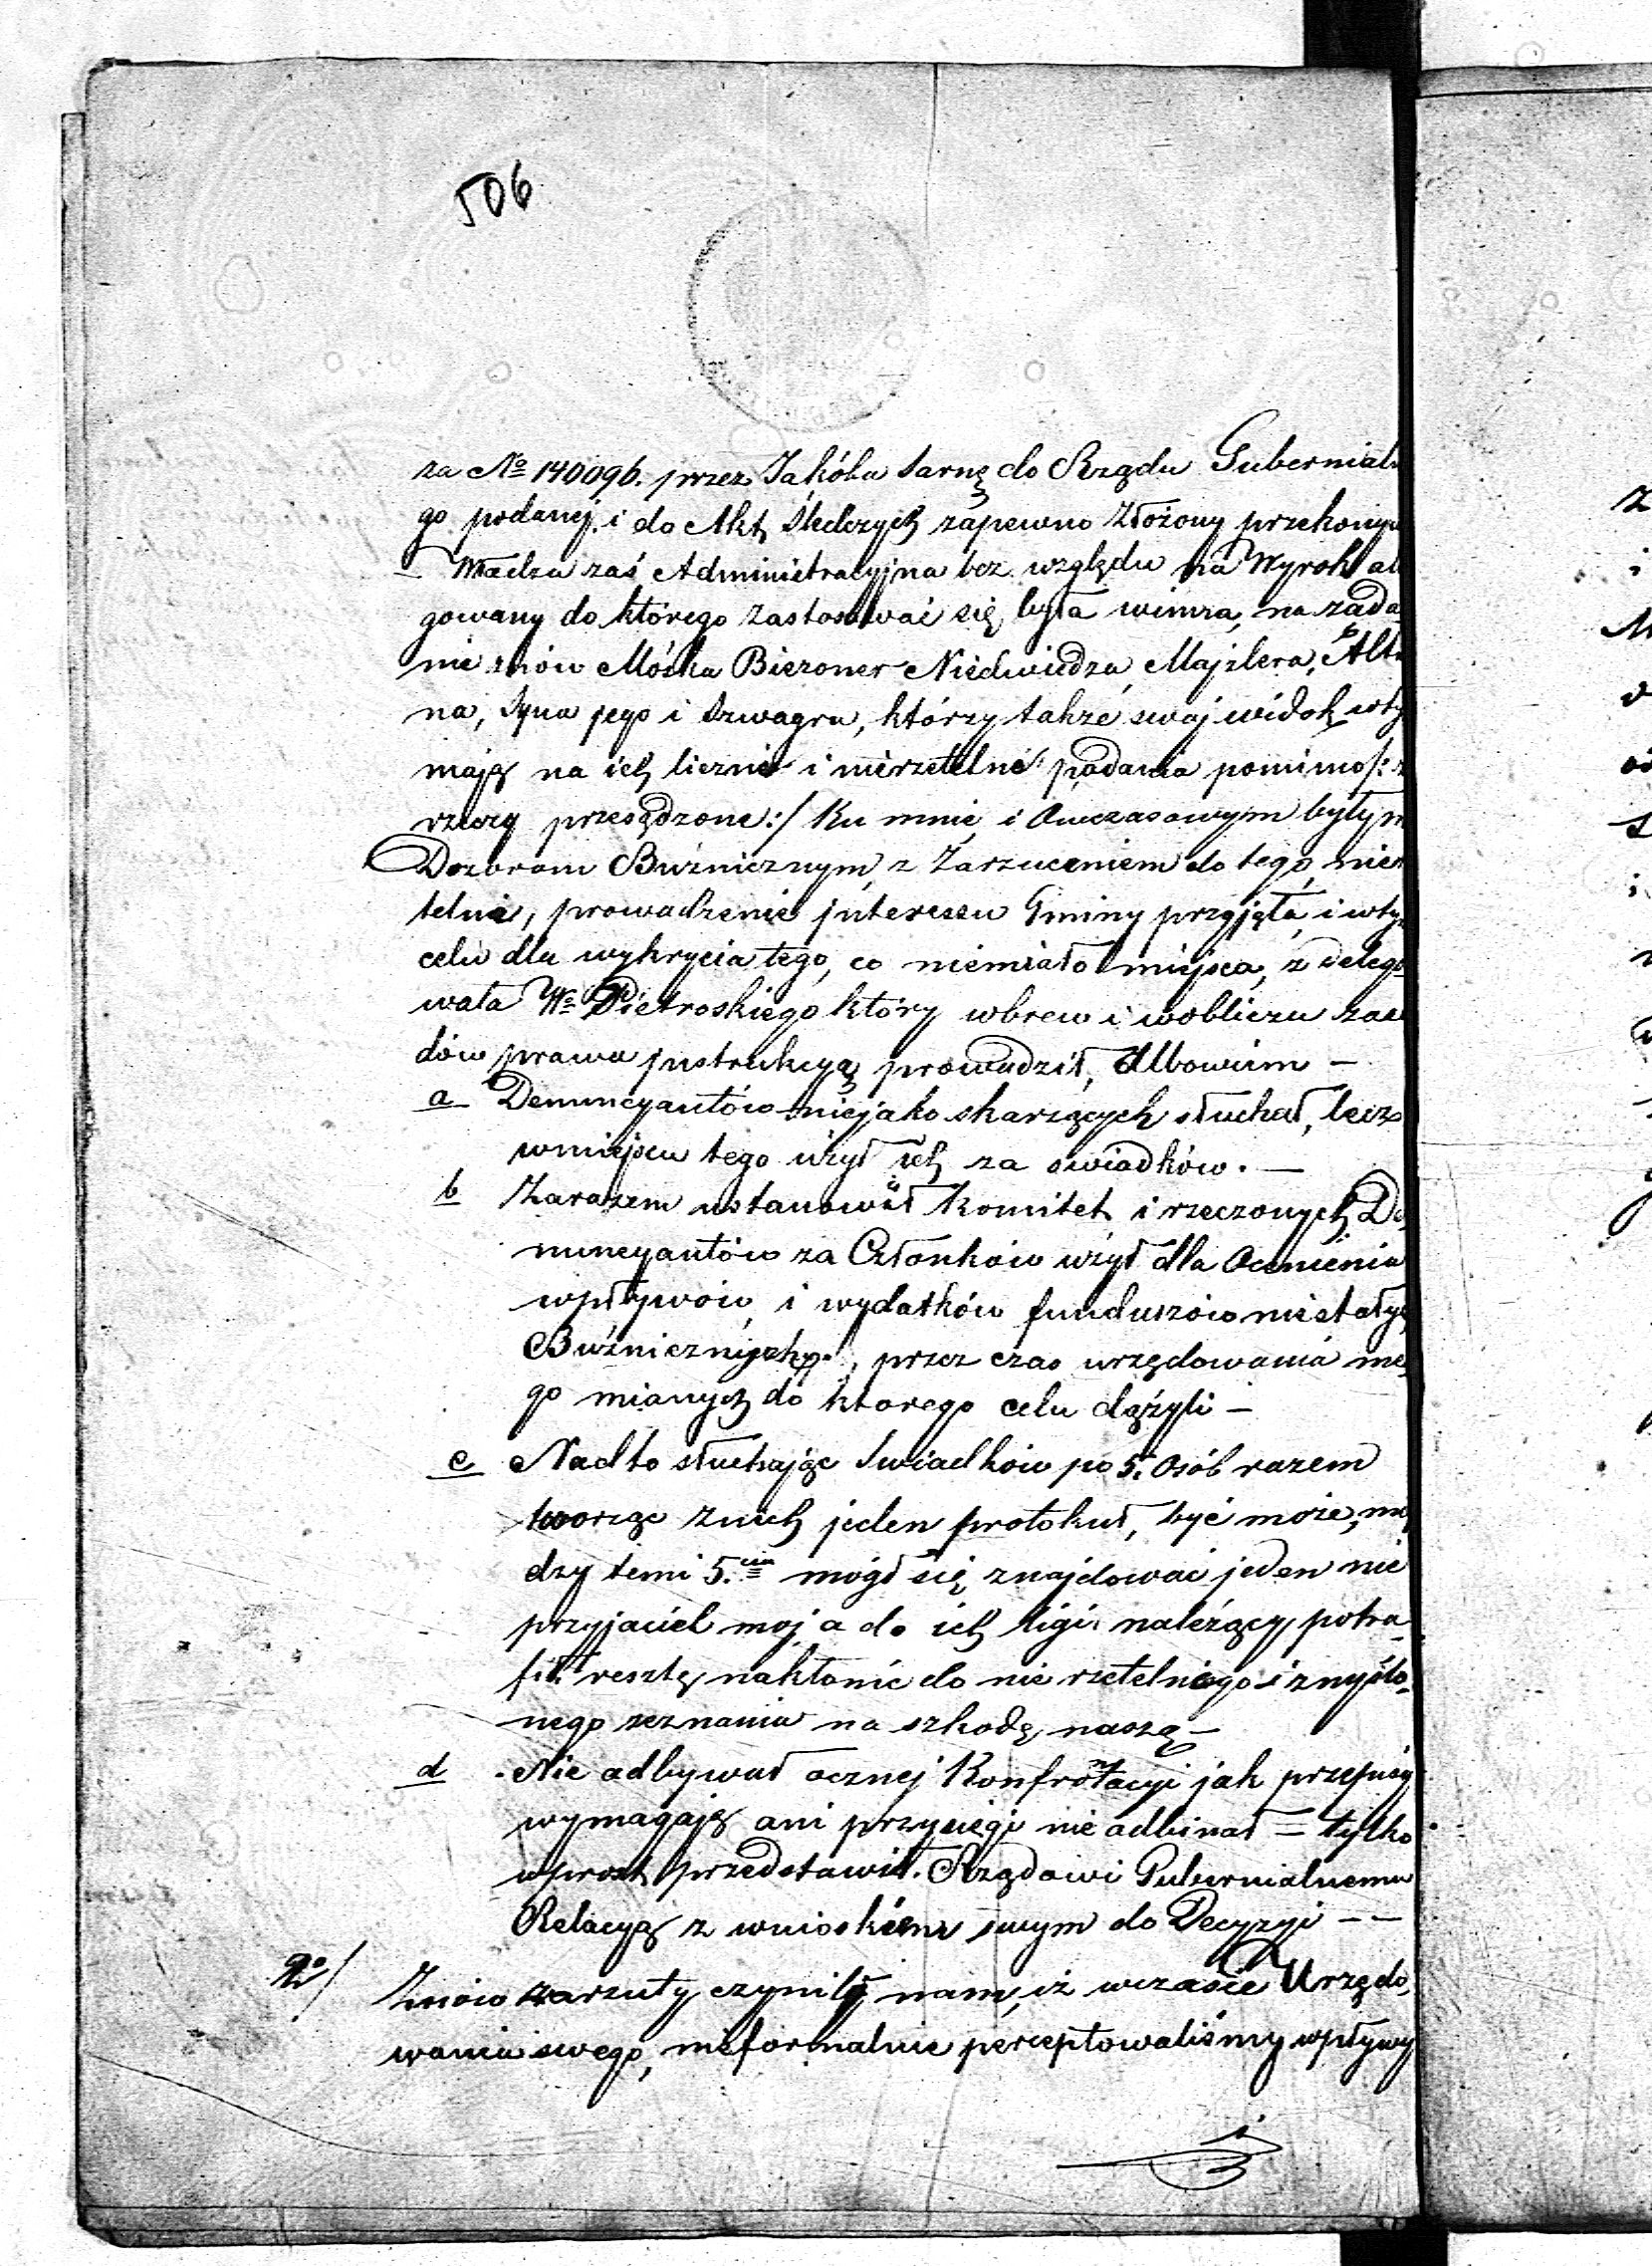 506
za No 140096. przez Jakóba Sarnę do Rządu Gubernial
go podanej i do Akt Śledczych zapewno złożony przekonyw
– Władza zaś Administracyjna bez względu na Wyrok al
gowany do którego zastosować się była winna, na żąda
nie znów Mośka Biezoner Niedwiedza, Majzlera, Alt
na, Syna jego i Szwagra, którzy także swój widok wty
mają na ich liczne i nierzetelne podania pomimo /:
rzeczy przesądzone :/ Ku mnie i Owczasowym byłym
Dozorom Bużnicznym z Zarzuceniem do tego nierz
telnie, prowadzenie interessu Gminy przyjęła i wty
celu dla wykrycia tego, co niemiało miejsca, z delego
wała Wo Pietroskiego który wbrew i wobliczu zasa
dów prawa instrukcyą prowadził, Albowiem –
a Denuncyantów niejako skarzących słuchał, lecz
wmiejscu tego użył ich za swiadków. –
b Zarazem ustanowił Komitet i rzeczonych De
nuncyantów za Członków użył dla Ocenienia
wpływów i wydatków funduszów niestałyc
Bużnicznych, przez czas urzędowania me
go mianych do ktorego celu dążyli –
c Nadto słuchając Swiadków po 5. Osób razem
tworząc znich jeden protokuł, być może, mię
dzy temi 5.cią mógł się znajdować jeden nie
przyjaciel moj a do ich ligi należący potra
fił resztę nakłonić do nie rzetelnego i zmyślo
nego zeznania na szkodę naszą –
d Nie odbywał ocznej Konfrontacyi jak przepisy
wymagają ani przysięgi nie odbierał – tylko
wprost przedstawił Rządowi Gubernialnemu
Relacyą z wnioskiem swym do Decyzyi – –
2o/ Znów zarzuty czynili nam, iż wczasie Urzędo
wania swego, nieformalnie perceptowaliśmy wpływy